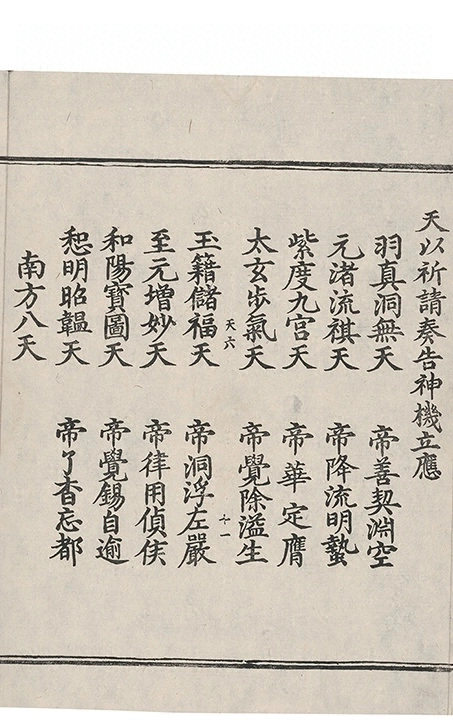 天以祈請奏告神機立應
羽真洞無天 帝善契淵空
元渚流祺天 帝降流明蟄
紫度九宮天 帝華定膺
太玄步氣天 帝覺除溢生
天六 十一
玉籍儲福天 帝洞浮左嚴
至元增妙天 帝律用偵俟
和陽寶圖天 帝覺錫自逾
恕明昭韞天 帝了杳忘都
南方八天